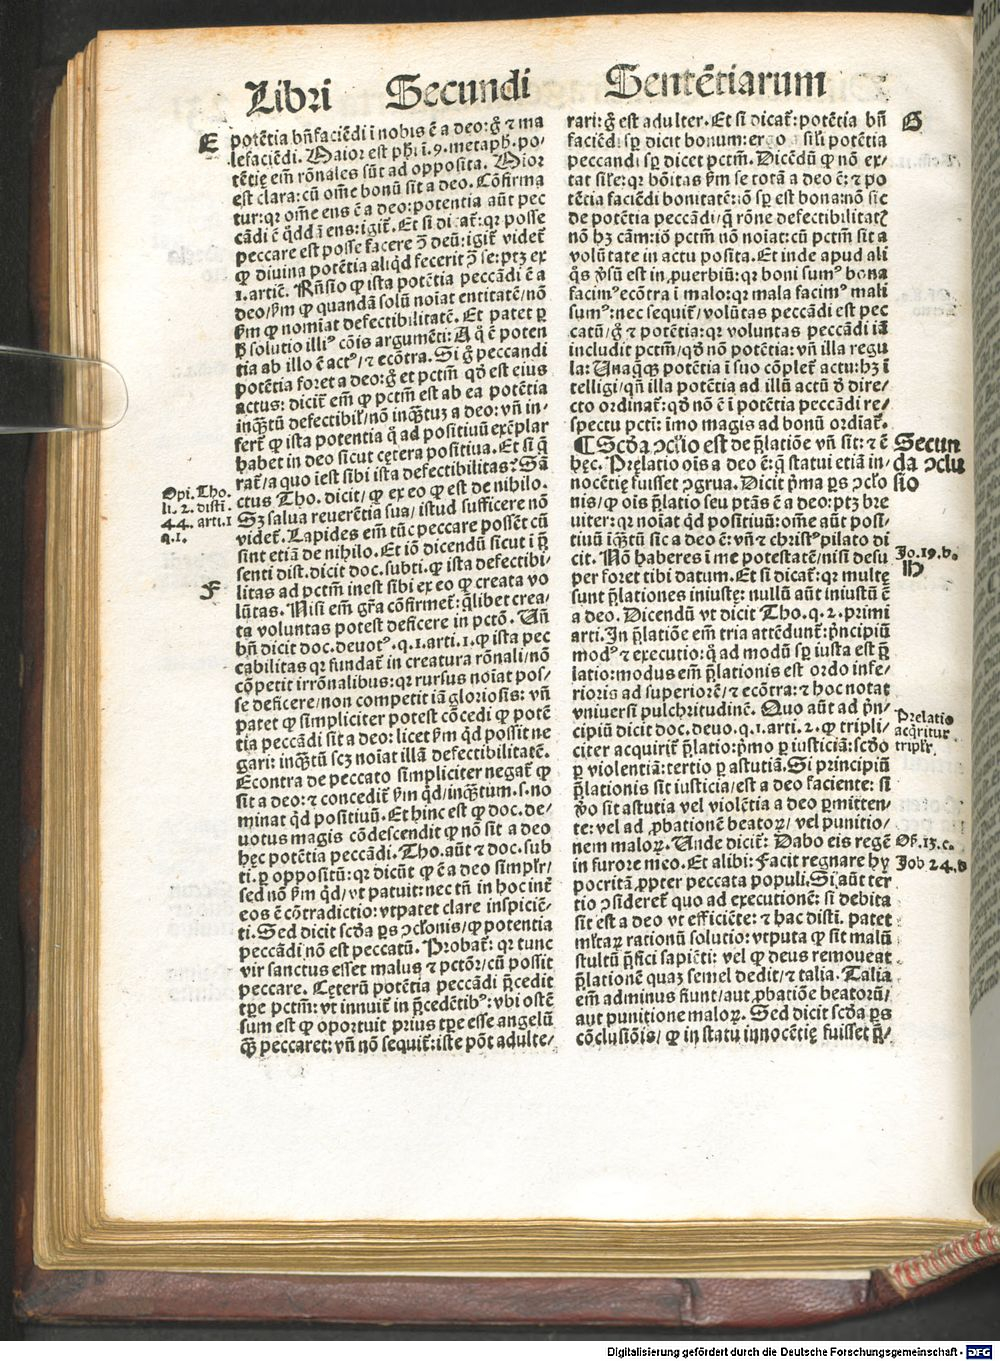 Libri Secundi Sentētiarum
E
potētia bñfaciēdi ī nobis ē a deo: g̃ ⁊ ma
lefaciēdi. Maior est ph̄i ī.9.metaph̄. po-
tētię em̄ rōnales sūt ad opposita. Mior
est clara: cū om̄e bonū sit a deo. Cōfirma
tur: qꝛ om̄e ens ē a deo: potentia aūt pec
cādi ē q̄ddā ens: igit̄. Et si dicat̄: qꝛ posse
peccare est posse facere ↄ̄ deū: igit̄ videt̄
ꝙ divina potētia aliq̄d fecerit ↄ̄ se: ptꝫ ex
1. artic̄. Rn̄sio ꝙ ista potētia peccādi ē a
deo/ ẜm ꝙ quandā solū noiat entitatē/ nō
ẜm ꝙ nomiat defectibilitatē. Et patet ꝑ
ꝑ̄ solutio illi⁹ cōis argumēti: A q̊ ē poten
tia ab illo ē act⁹/ ⁊ ecōtra. Si g̃ peccandi
potētia foret a deo: g̃ et pctm̄ qd̄ est eius
actus: dicit̄ em̄ ꝙ pctm̄ est ab ea potētia
inq̄ꝫtū defectibil̄/ nō inq̄ꝫtuꝫ a deo: vn̄ in-
fert̄ ꝙ ista potentia q̄ ad positiuū exēplar
habet in deo sicut cętera positiua. Et si q̄
rat̄/ a quo iest sibi ista defectibilitas? Sā
ctus Tho. dicit/ ꝙ ex eo ꝙ est de nihilo.
Sꝫ salua reuerētia sua/ istud sufficere nō
videt̄. Lapides em̄ tūc peccare possēt cū
sint etiā de nihilo. Et iō dicendū sicut ī p̄
senti dist. dicit doc. subti. ꝙ ista defectibi-
litas ad pctm̄ inest sibi ex eo ꝙ creata vo
lūtas. Nisi em̄ gr̄a cōfirmet̄: q̄libet crea-
ta voluntas potest deficere in pctō. Vn̄
bn̄ dicit doc. deuot⁹. q.1. arti.1. ꝙ ista pec
cabilitas qꝛ fundat̄ in creatura rōnali/ nō
cōpetit irrōnalibus: qꝛ rursus noiat pos-
se deficere/ non competit iā gloriosis: vn̄
patet ꝙ simpliciter potest cōcedi ꝙ potē
tia peccādi sit a deo: licet ẜm qd̄ possit ne
gari: inq̄ꝫtū scꝫ noiat illā defectibilitatē.
Econtra de peccato simpliciter negat̄ ꝙ
sit a deo: ⁊ concedit̄ ẜm qd̄/ inq̄ꝫtum.s. no
minat qd̄ positiuū. Et hinc est ꝙ doc. de-
uotus magis cōdescendit ꝙ nō sit a deo
hęc potētia peccādi. Tho. aūt ⁊ doc. sub
ti. ꝑ oppositū: qꝛ dicūt ꝙ ē a deo simpl̄r/
sed nō ẜm qd̄/ vt patuit: nec tn̄ in hoc int̄
eos ē cōtradictio: vt patet clare inspiciē-
ti. Sed dicit sc̄da ꝑs ↄcl̄onis/ ꝙ potentia
peccādi nō est peccatū. Probat̄: qꝛ tunc
vir sanctus esset malus ⁊ pctōr/ cū possit
peccare. Cęterū potētia peccādi p̄cedit
tꝑe pctm̄: vt innuit̄ in p̄cedētib⁹: vbi ostē
sum est ꝙ oportuit prius tꝑe esse angelū
q̄ꝫ peccaret: vn̄ nō sequit̄: iste pōt adulte/
Opi. Tho.
li. 2. disti.
44. arti.1
q.1.
F
rari: g̃ est adulter. Et si dicat̄: potētia bn̄
faciēdi sꝑ dicit bonum: ergo a sil̄i potētia
peccandi sꝑ dicet pctm̄. Dicēdū ꝙ nō ex-
tat sil̄e: qꝛ bōitas ẜm se totā a deo ē: ⁊ po
tētia faciēdi bonitatē: iō sꝑ est bona: nō sic
de potētia peccādi/ q̄ rōne defectibilitat̄
nō hꝫ cām: iō pctm̄ nō noiat: cū pctm̄ sit a
volūtate in actu posita. Et inde apud ali
q̊s ꝟsū est in ꝓuerbiū: qꝛ boni sum⁹ bona
facim⁹ ecōtra i malo: qꝛ mala facim⁹ mali
sum⁹: nec sequit̄/ volūtas peccādi est pec
catū/ g̃ ⁊ potētia: qꝛ voluntas peccādi iā
includit pctm̄/ qd̄ nō potētia: vn̄ illa regu
la: Vnaq̄ꝫqꝫ potētia ī suo cōplet̄ actu: hꝫ ī
telligi/ qn̄ illa potētia ad illū actū ē dire-
cto ordinat̄: qd̄ nō ē ī potētia peccādi re/
spectu pcti: imo magis ad bonū ordīat̄.
¶ Sc̄da ↄcl̄io est de p̄latiōe vn̄ sit: ⁊ ē
hęc. Prelatio ois a deo ē: q̄ statui etiā in-
nocētię fuisset ↄgrua. Dicit p̄ma ꝑs ↄcl̄o
nis/ ꝙ ois p̄latio seu ptās ē a deo: ptꝫ bre
uiter: qꝛ noiat qd̄ positiuū: ome aūt posi-
tiuū inq̄ꝫtū sic a deo ē: vn̄ ⁊ christ⁹ pilato di
cit. Nō haberes ī me potestatē/ nisi desu
per foret tibi datum. Et si dicat̄: qꝛ multę
sunt p̄lationes iniustę: nullū aūt iniustū ē
a deo. Dicendū vt dicit Tho. q.2. primi
arti. In p̄latiōe em̄ tria attēdunt̄: p̄ncipiū
mod⁹ ⁊ executio: q̄ ad modū sꝑ iusta est p̄
latio: modus em̄ p̄lationis est ordo infe-
rioris ad superiorē/ ⁊ ecōtra: ⁊ hoc notat
vniuersi pulchritudinē. Quo aūt ad p̄n-
cipiū dicit doc. deuo. q.1. arti. 2. ꝙ tripli-
citer acquirit̄ p̄latio: p̄mo ꝑ iusticiā: sc̄do
ꝑ violentiā: tertio ꝑ astutiā. Si principiū
p̄lationis sit iusticia/ est a deo faciente: si
ꝟo sit astutia vel violētia a deo ꝑmitten-
te: vel ad ꝓbationē beatoꝝ/ vel punitio-
nem maloꝝ. Vnde dicit̄: Dabo eis regē
in furore meo. Et alibi: Facit regnare hy
pocritā ꝓpter peccata populi. Si aūt ter
tio ↄsideret̄ quo ad executionē: si debita
sit est a deo vt efficiēte: ⁊ hac disti. patet
ml̄taꝝ rationū solutio: vtputa ꝙ sit malū
stultū p̄fici sapiēti: vel ꝙ deus remoueat
p̄lationē quaꝫ semel dedit/ ⁊ talia. Talia
em̄ adminus fiunt/ aut ꝓbatiōe beatorū/
aut punitione maloꝝ. Sed dicit sc̄da ꝑs
cōclusiōis/ ꝙ in statu innocētię fuisset p̄/
G
Secun
da ↄclu
sio
Jo.19.b.
H
Prelatio
acq̄ritur
tripl̄r.
Os̄.13.c.
Job 24.
Digitalisierung gefördert durch die Deutsche Forschungsgemeinschaft - DFG